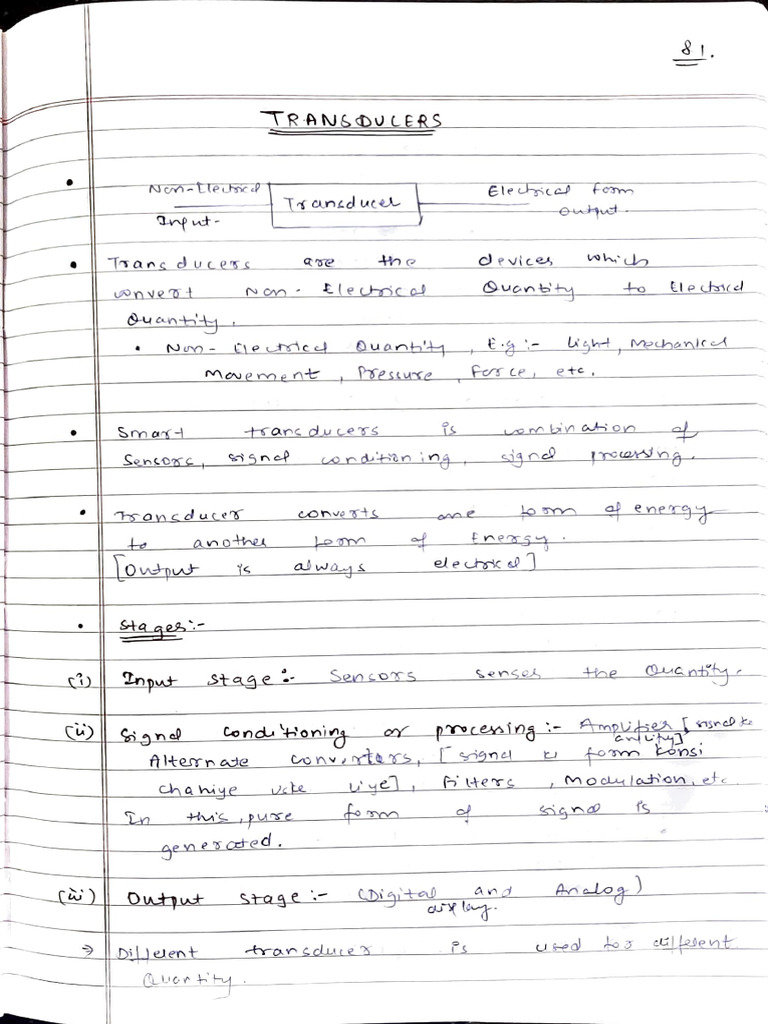 81.
TRANSDUCERS
Non-Electrical Transducer Electrical form
Input- output.
• Transducers are the devices which
convert Non-Electrical Quantity to Electrical
Quantity.
• Non-Electrical Quantity, E.g:- Light, Mechanical
Movement, Pressure, Force, etc.
• Smart transducers is combination of
Sensors, signal conditioning, signal processing.
• Transducer converts one form of energy
to another form of Energy.
[Output is always electrical]
• Stages:-
(i) Input stage:- Sensors senses the Quantity.
(ii) Signal conditioning or processing:- Amplifier [signal ko
amplify]
Alternate converters, [signal ki form konsi
chahiye uske liye], Filters, Modulation, etc.
In this, pure form of signal is
generated.
(iii) Output stage:- (Digital and Analog)
display.
→ Different transducer is used for different
Quantity.